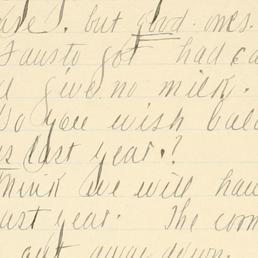 but good ones.
Fausto got had ca
d give no milk.
Do you wish
as last year?
think we will hav
last year. The corn
out away down.